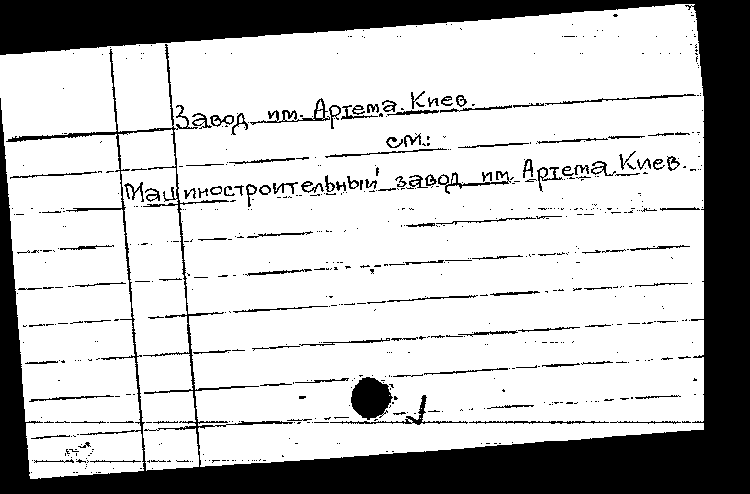 Завод им. Артема. Киев.
см.:
Машиностроительный завод им. Артема. Киев.